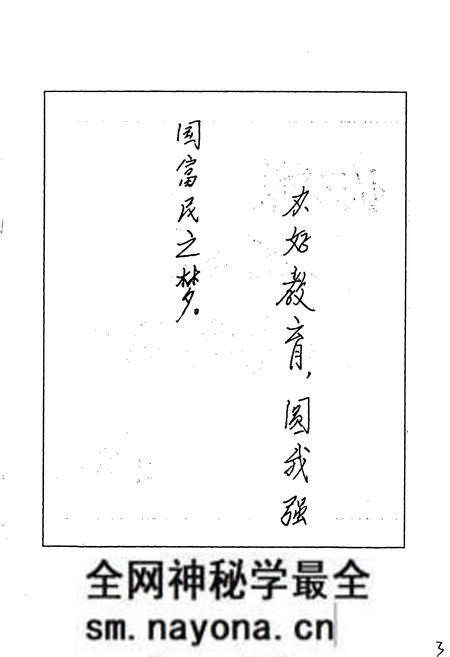 办好教育，圆我强
国富民之梦。
全网神秘学最全
sm.nayona.cn
3